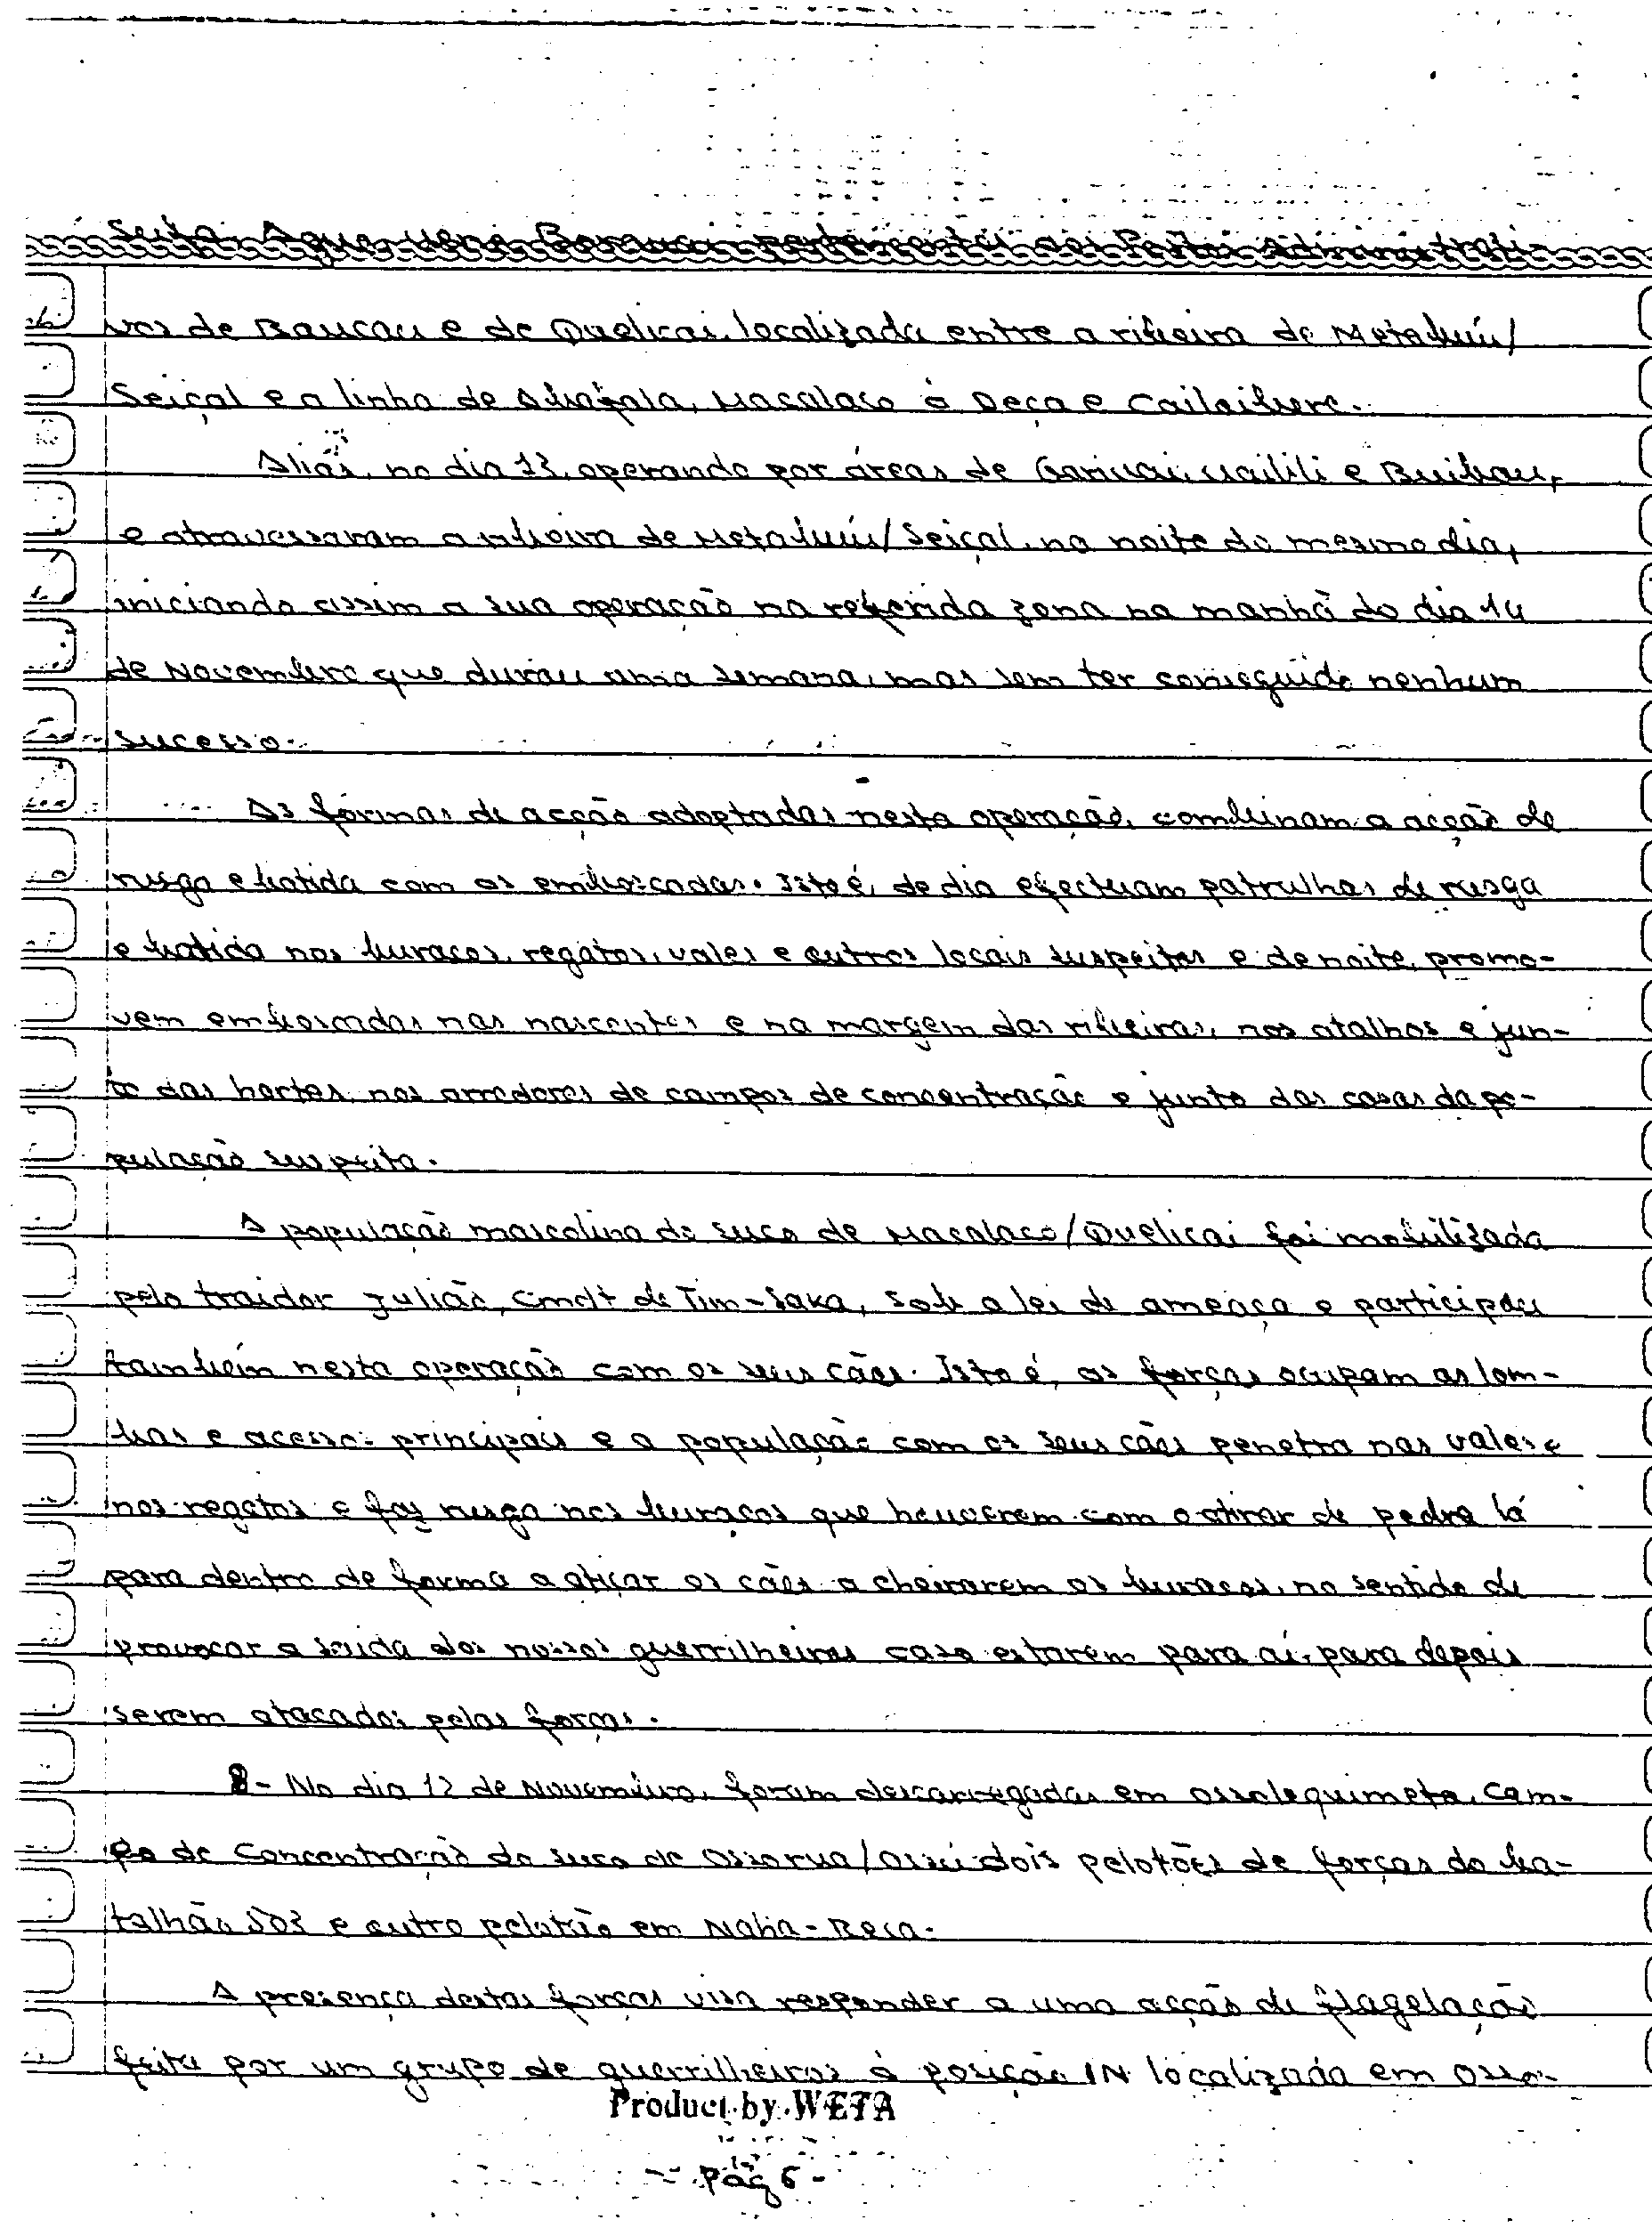 pertencentes aos Postos Administrati-
vos de Baucau e de Quelicai, localizada entre a ribeira de Metabuú/
Seiçal e a linha de Macalaco à Deça e Cailaibere.
Aliás, no dia 13, operando por áreas de Gariuai, Uailili e Buibau,
e atravessaram a ribeira de Metabuú/Seiçal, na noite do mesmo dia,
iniciando assim a sua operação na referida zona na manhã do dia 14
de Novembro que durou uma semana, mas sem ter conseguido nenhum
sucesso.
As formas de acção adoptadas nesta operação, combinam a acção de
rusga e batida com as emboscadas. Isto é, de dia efectuam patrulhas de rusga
e batida nos buracos, regatos, vales e outros locais suspeitos e de noite, promo-
vem emboscadas nas nascentes e na margem das ribeiras, nos atalhos e jun-
to das hortas, nos arredores de campos de concentração e junto das casas da po-
pulação suspeita.
A população mascolina do suco de Macalaco/Quelicai foi mobilizada
pelo traidor Julião, Cmdt de Tim-Saka, sob a lei de ameaça e participou
também nesta operação com os seus cães. Isto é, as forças ocupam as lom-
bas e acessos principais e a população com os seus cães penetra nas vales e
nos regatos e faz rusga nos buracos que houverem com o atirar de pedra lá
para dentro de forma a atiçar os cães a cheirarem os buracos, no sentido de
provocar a saida dos nossos guerrilheiros caso estarem para aí, para depois
serem atacados pelas forças.
8- No dia 12 de Novembro, foram descarregadas em Ossolequimeta, Cam-
po de Concentração do suco de Ossorua/Ossú dois pelotões de forças do ba-
talhão 503 e outro pelotão em Naha-Reca.
A presença destas forças visa responder a uma acção de flagelação
feita por um grupo de guerrilheiros à posição IN localizada em Osso-
Product by WETA
- Pág 6 -